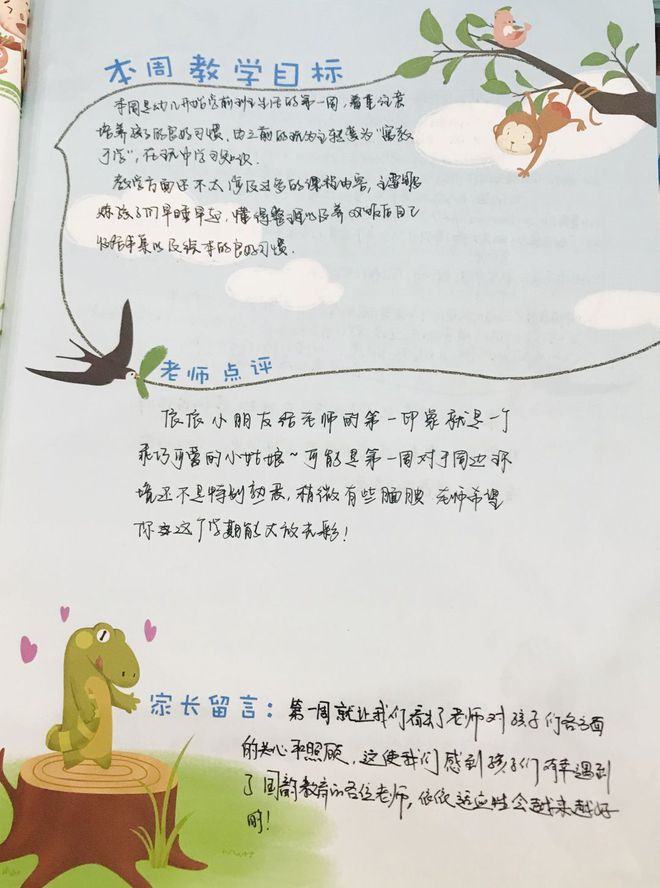 本周教学目标
本周是幼儿开始学前班生活的第一周，着重注意
培养孩子的良好习惯，由之前的玩为主转变为"寓教
于学"，在玩中学习知识.
教学方面还不太涉及过多的课程内容，主要锻
炼孩子们早睡早起，懂得整理以及养成饭后自己
收拾
的良好习惯.
老师点评
依依小朋友给老师的第一印象就是一个
乖巧可爱的小姑娘~可能是第一周对于周边环
境还不是特别熟悉，稍微有些腼腆 老师希望
你在这个学期能大放光彩！
家长留言：
第一周就让我们看到了老师对孩子们各方面
的关心和照顾，这使我们感到孩子们有幸遇到
了国韵教育的各位老师，依依适应性会越来越好
的！